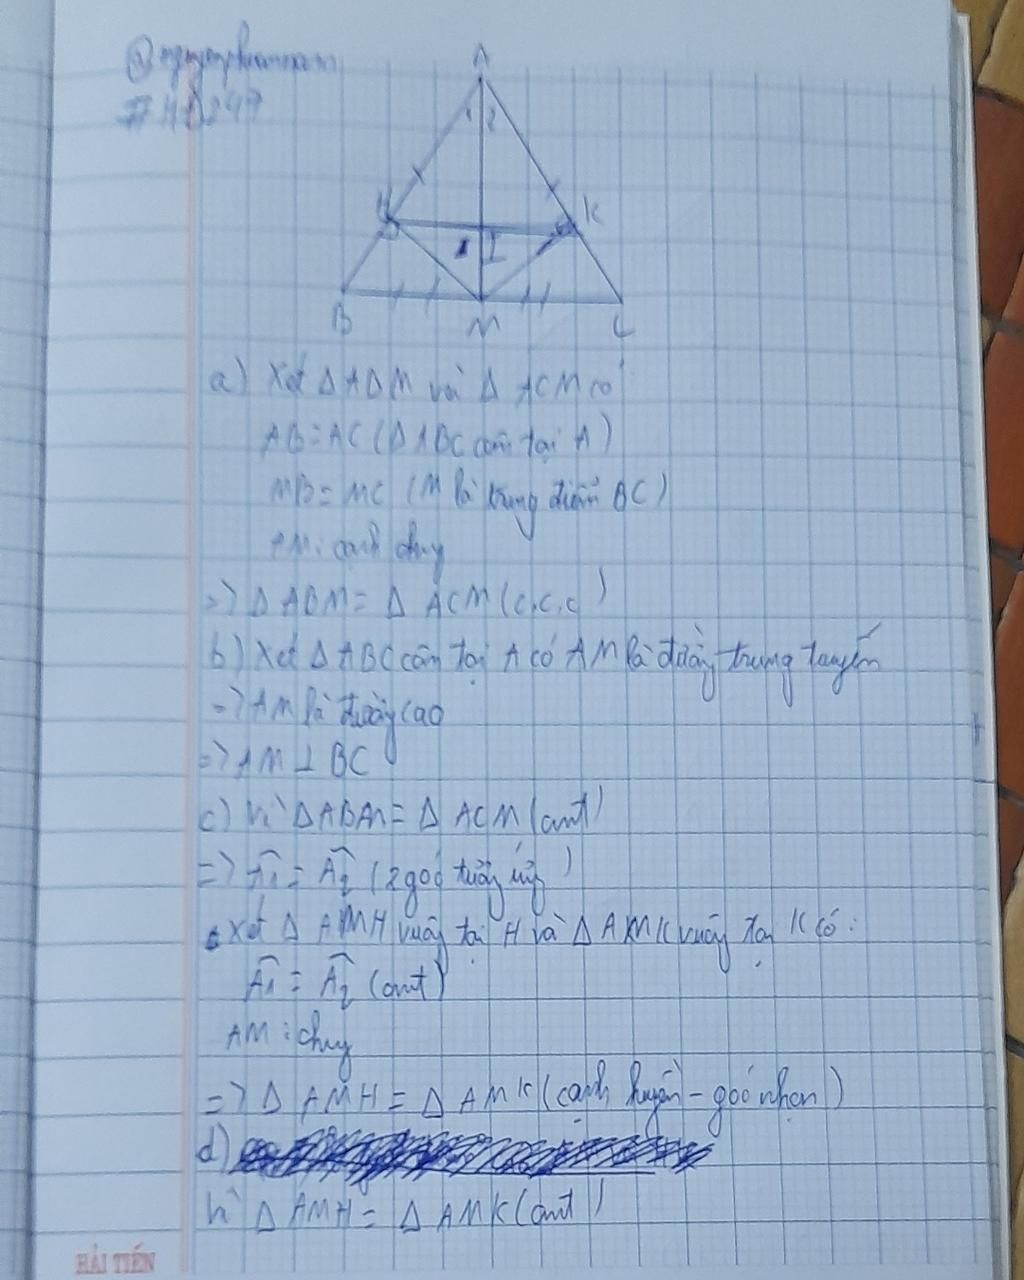 @nguyenphuonnam
#HD247
A
1 2
H
K
I
B
M
C
a) Xét Δ ABM và Δ ACM có
AB = AC (Δ ABC cân tại A)
MB = MC (M là trung điểm BC)
AM: cạnh chung
=> Δ ABM = Δ ACM (c.c.c)
b) Xét Δ ABC cân tại A có AM là đường trung tuyến
=> AM là đường cao
=> AM ⊥ BC
c) Vì Δ ABM = Δ ACM (cmt)
=> Â1 = Â2 (2 góc tương ứng)
Xét Δ AMH vuông tại H và Δ AMK vuông tại K có:
Â1 = Â2 (cmt)
AM: chung
=> Δ AMH = Δ AMK (cạnh huyền - góc nhọn)
d)
Vì Δ AMH = Δ AMK (cmt)
HẢI TIẾN